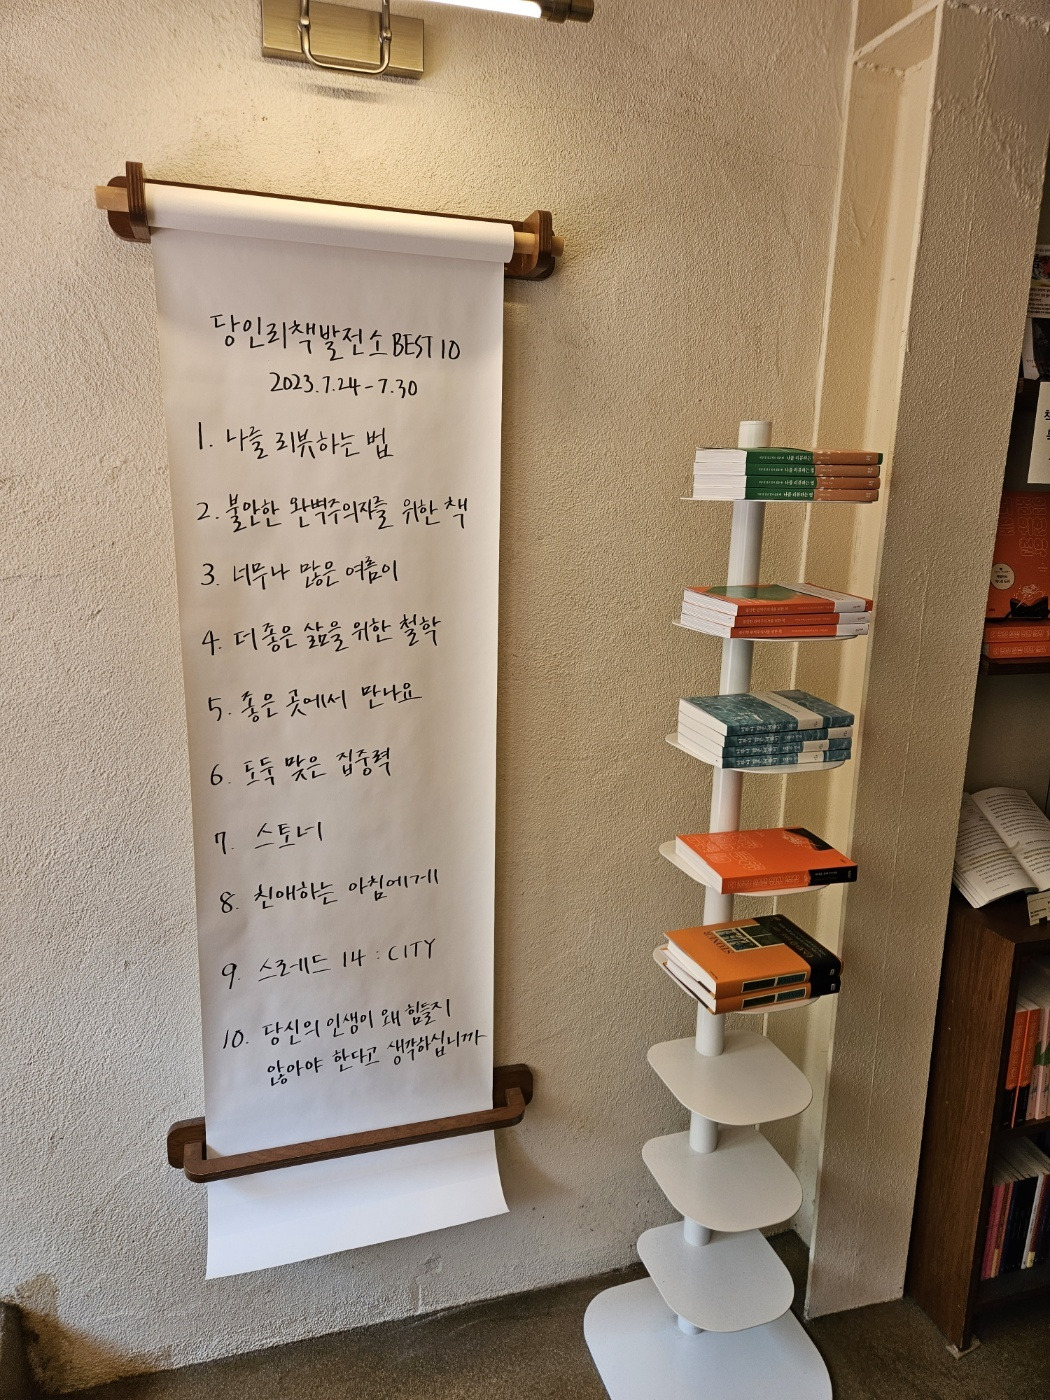 당인리책발전소 BEST 10
2023.7.24-7.30
1. 나를 리뷰하는 법
2. 불안한 완벽주의자를 위한 책
3. 너무나 많은 여름이
4. 더 좋은 삶을 위한 철학
5. 좋은 곳에서 만나요
6. 도둑 맞은 집중력
7. 스토너
8. 친애하는 아침에게
9. 스레드 14 : CITY
10. 당신의 인생이 왜 힘들지
않아야 한다고 생각하십니까